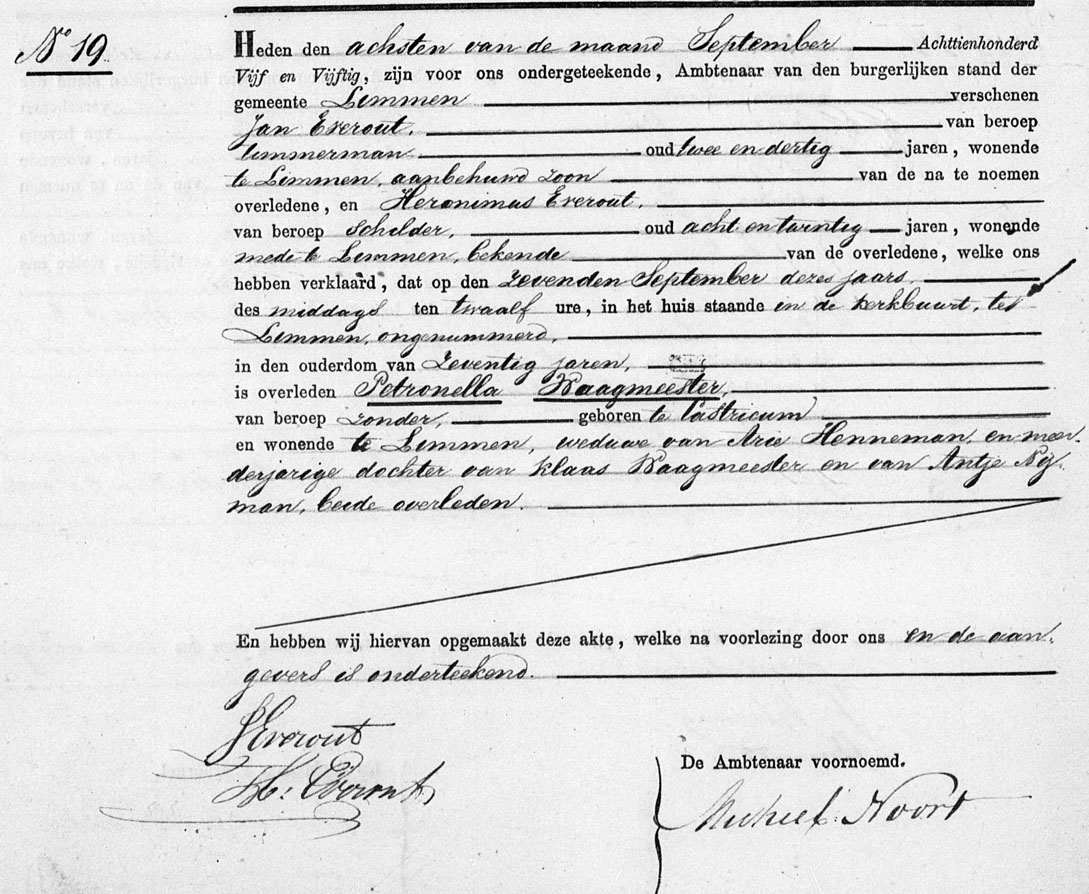 No 19.
Heden den achsten van de maand September Achttienhonderd
Vijf en Vijftig, zijn voor ons ondergeteekende, Ambtenaar van den burgerlijken stand der
gemeente Limmen verschenen
Jan Everout, van beroep
timmerman oud twee en dertig jaren, wonende
te Limmen, aanbehuwd zoon van de na te noemen
overledene, en Heronimus Everout,
van beroep Schilder, oud acht en twintig jaren, wonende
mede te Limmen, bekende van de overledene, welke ons
hebben verklaard, dat op den Zevenden September dezes jaars,
des middags ten twaalf ure, in het huis staande in de kerkbuurt, te
Limmen, ongenummerd,
in den ouderdom van Zeventig jaren,
is overleden Petronella Waagmeester,
van beroep zonder, geboren te Castricum
en wonende te Limmen, weduwe van Arie Henneman, en meer
derjarige dochter van Klaas Waagmeester en van Antje Nij-
man, beide overleden.
En hebben wij hiervan opgemaakt deze akte, welke na voorlezing door ons en de aan-
gevers is onderteekend.
J Everout
H: Everout
De Ambtenaar voornoemd.
Michiel Noort